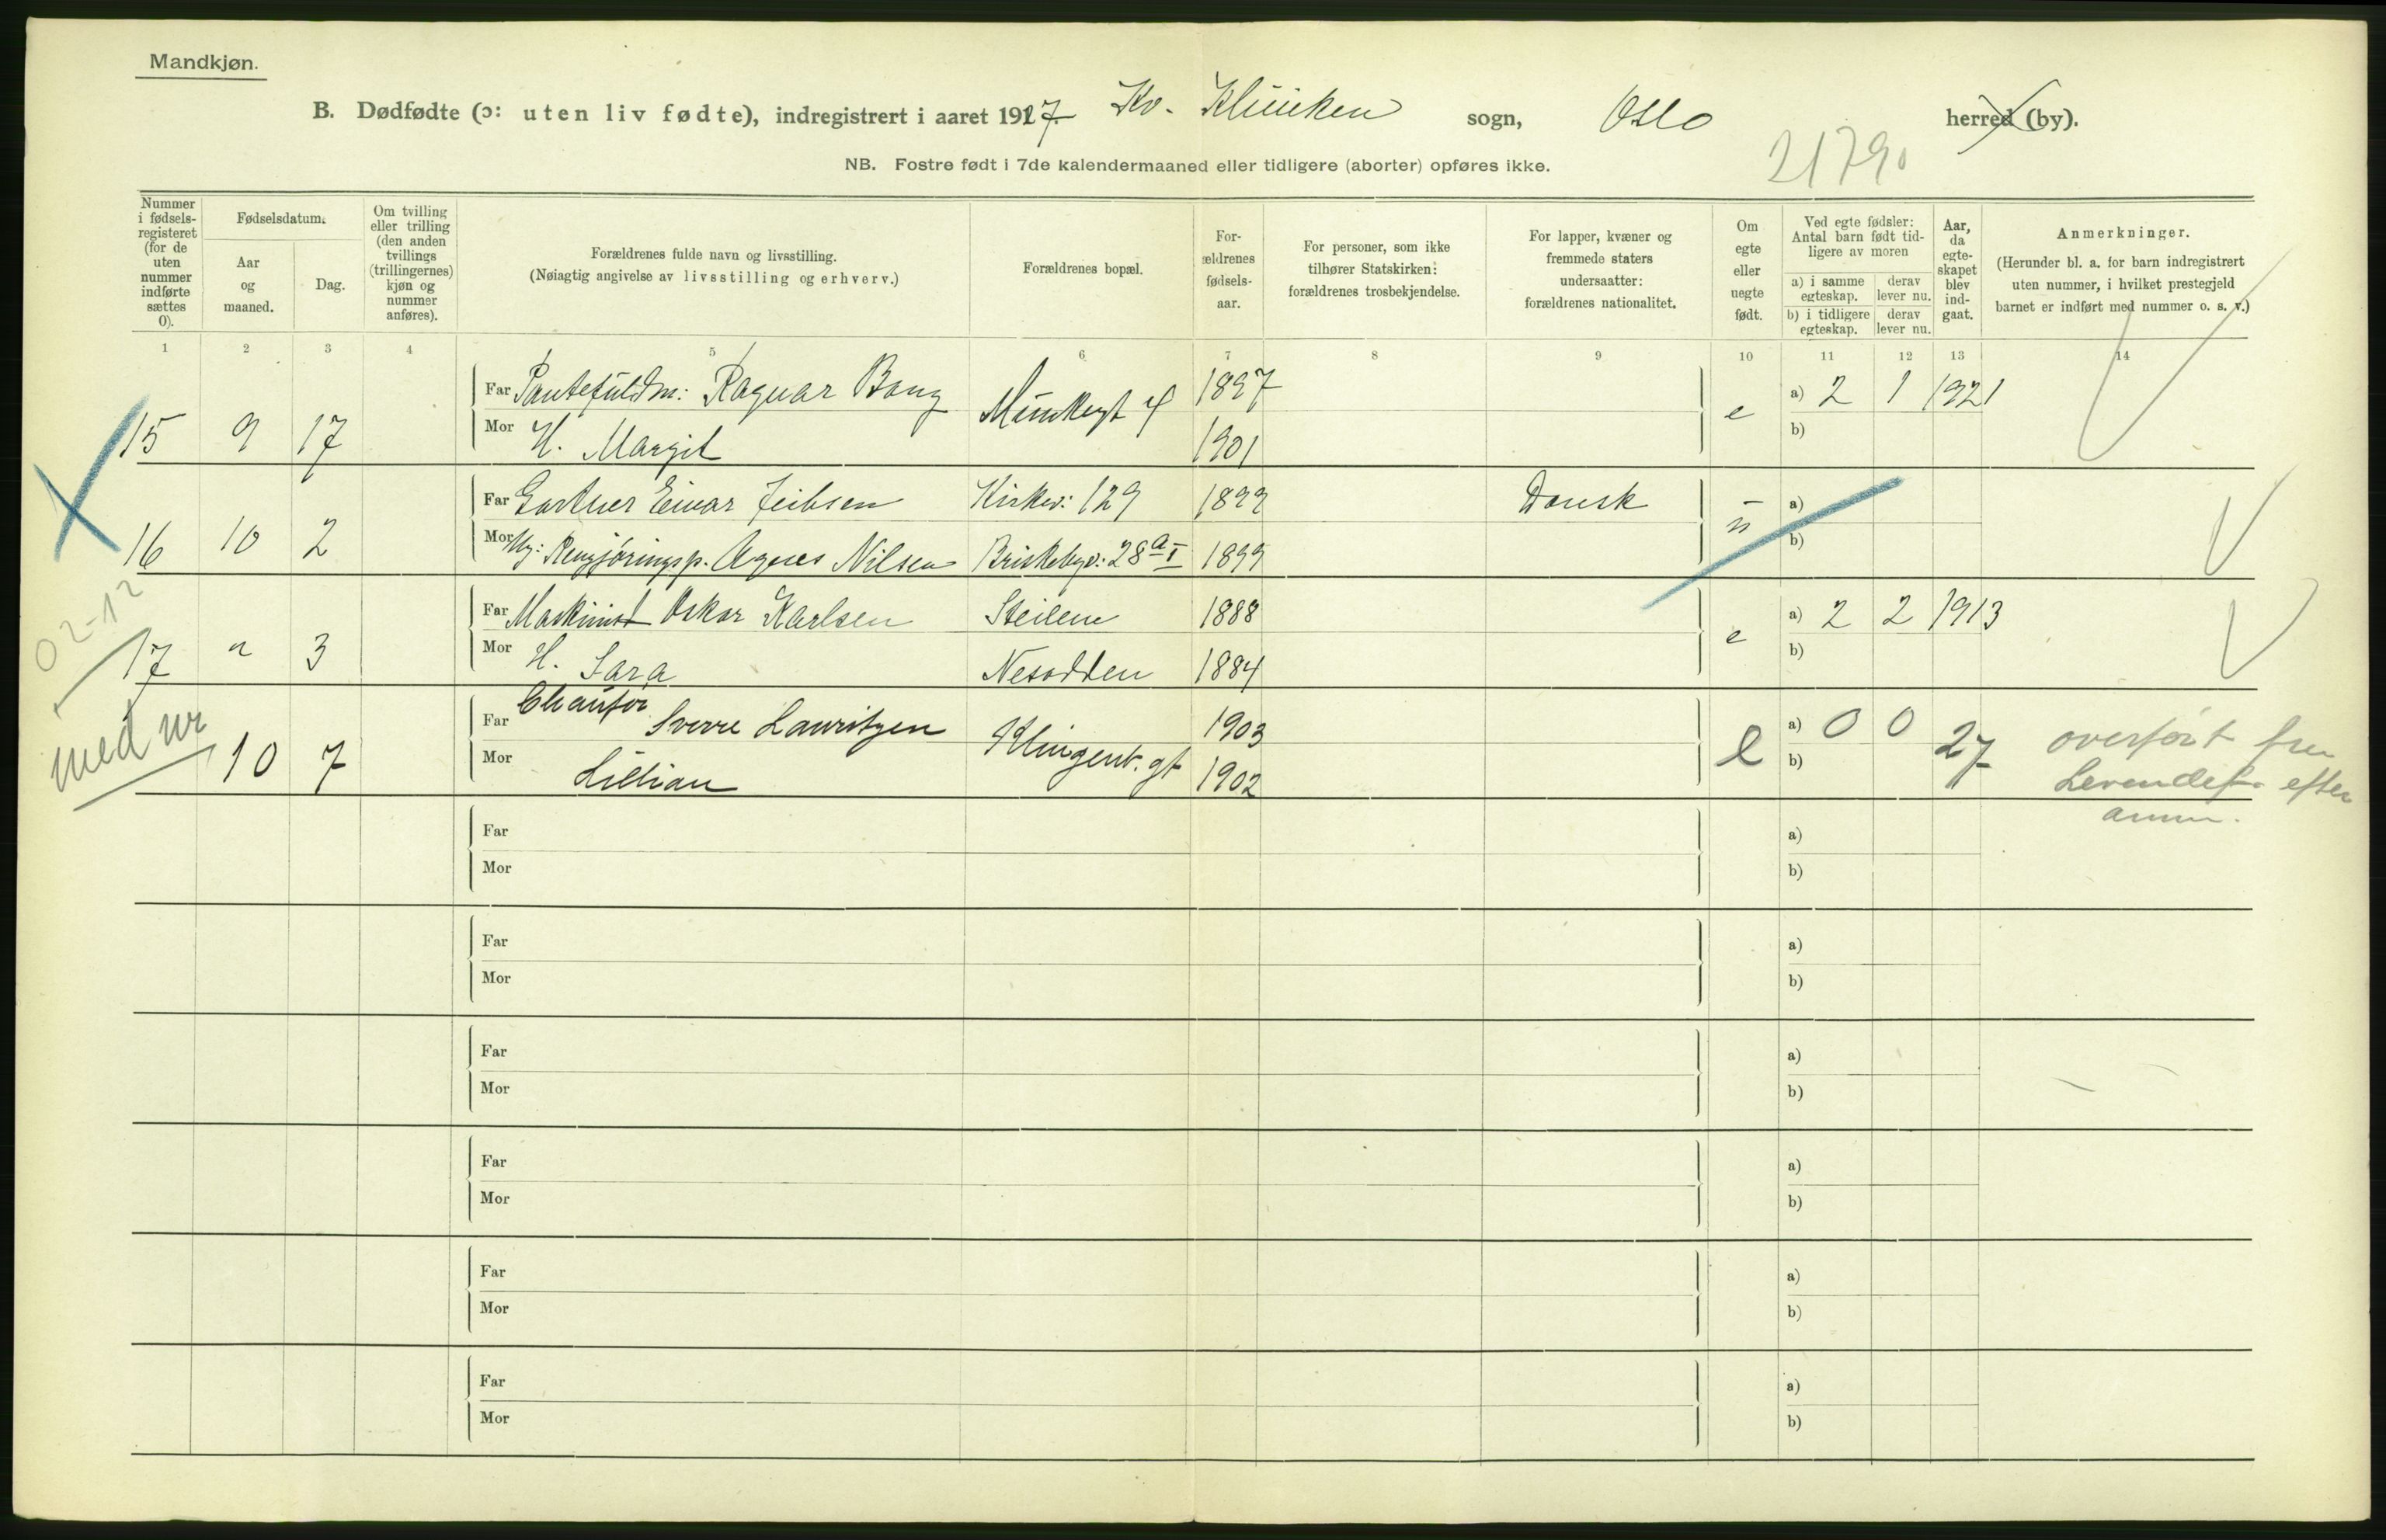 Mandkjøn.
B. Dødfødte (ɔ: uten liv fødte), indregistrert i aaret 1927. Kv. Kliniken sogn, Oslo herred (by).
21790
NB. Fostre født i 7de kalendermaaned eller tidligere (aborter) opføres ikke.
Nummer i fødsels-registeret (for de uten nummer indførte sættes 0).
Fødselsdatum.
Aar og maaned.
Dag.
Om tvilling eller trilling (den anden tvillings (trillingernes) kjøn og nummer anføres).
Forældrenes fulde navn og livsstilling.
(Nøiagtig angivelse av livsstilling og erhverv.)
Forældrenes bopæl.
For-ældrenes fødsels-aar.
For personer, som ikke tilhører Statskirken: forældrenes trosbekjendelse.
For lapper, kvæner og fremmede staters undersaatter: forældrenes nationalitet.
Om egte eller uegte født.
Ved egte fødsler: Antal barn født tid-ligere av moren
a) i samme egteskap.
derav lever nu.
b) i tidligere egteskap.
derav lever nu.
Aar, da egte-skapet blev ind-gaat.
Anmerkninger.
(Herunder bl. a. for barn indregistrert uten nummer, i hvilket prestegjeld barnet er indført med nummer o. s. v.)
1 2 3 4 5 6 7 8 9 10 11 12 13 14
15 9 17 Far Ragnar Bang 1897 e a) 2 1 1921
Mor H. Margit Munkegt 4 1901 b)
16 10 2 Far Gartner Einar Kirkev: 129 1899 Dansk u a)
Mor Ug: Rengjøringsp. Agnes Nilsen Briskebyv: 28 a I 1899 b)
02-12
17 " 3 Far Maskinist Oskar Karlsen Steilene 1888 e a) 2 2 1913
Mor H. Sara Nesodden 1884 b)
med nr
10 7 Far Chaufør Sverre Lauritzen Klingenb. gt 1903 e a) 0 0 27 overført fra
Mor Lillian 1902 b) Levendef. efter
anm.
Far a)
Mor b)
Far a)
Mor b)
Far a)
Mor b)
Far a)
Mor b)
Far a)
Mor b)
Far a)
Mor b)